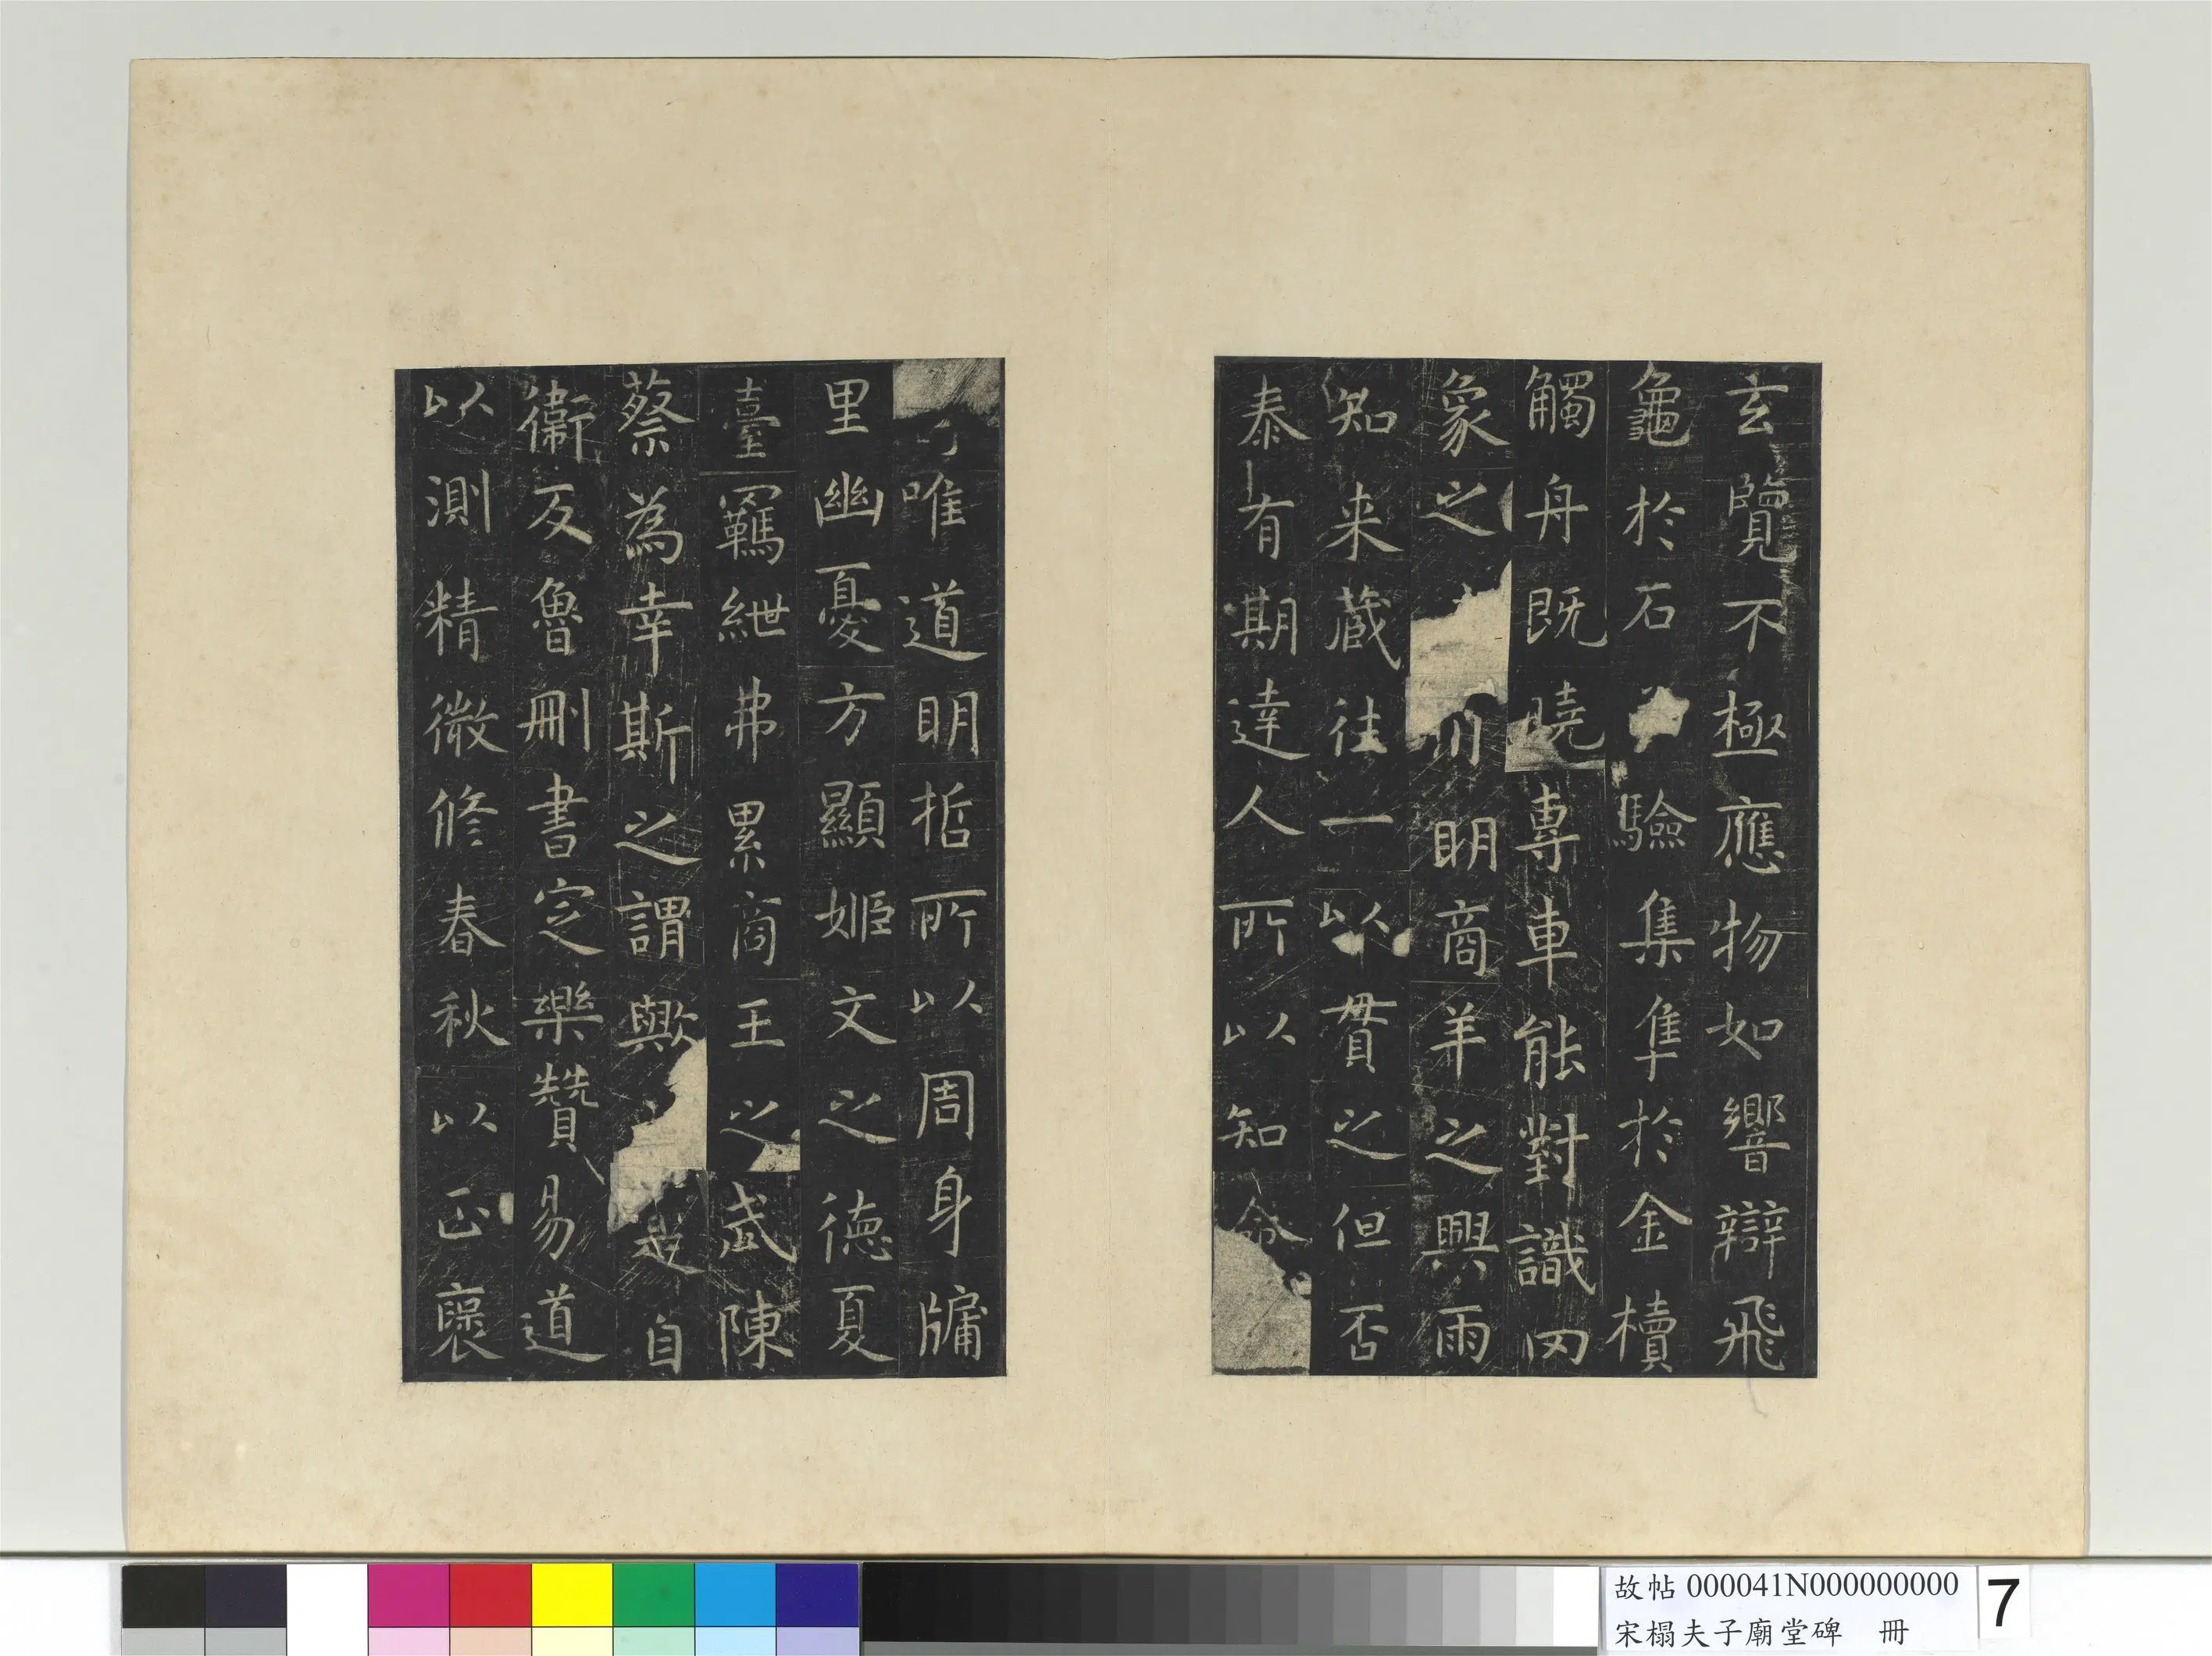 玄覽不極應物如響辯飛
龜於石驗集隼於金櫝
觸舟既曉專車能對識罔
象之明商羊之興雨
知来藏往一以貫之但否
泰有期達人所以知命
唯道明哲所以周身牖
里幽憂方顯姬文之德夏
臺羈紲弗累商王之武陳
蔡為幸斯之謂歟自
衛反魯刪書定樂贊易道
以測精微修春秋以正褒
故帖 000041N000000000
宋榻夫子廟堂碑 冊
7